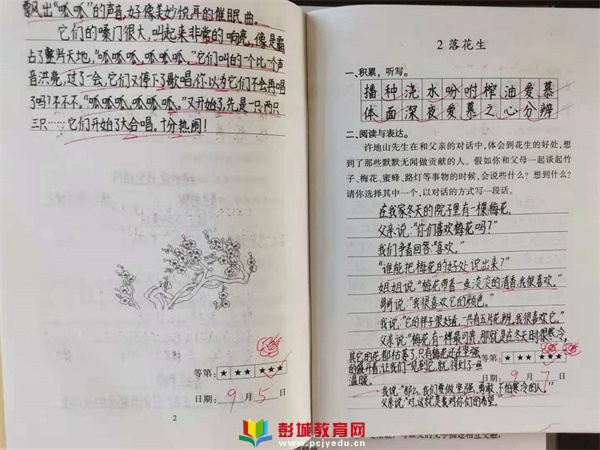 飘出“呱呱”的声音,好像美妙悦耳的催眠曲。
它们的嗓门很大,叫起来非常的响亮,像是霸
占了整片天地,“呱呱呱,呱呱呱。”它们叫的一个比一个声
音洪亮,过了一会,它们又停下了歌唱,你以为它们不会再唱
了吗?不不不。“呱呱呱,呱呱呱。”又开始了,先是一只,两只
三只……它们开始了大合唱,十分热闹!
等第:★ ★★ ★★★
日期:9月5日
2
2 落花生
一、积累,听写。
播种浇水吩咐榨油爱慕
体面深夜爱慕之心分辨
二、阅读与表达。
许地山先生在和父亲的对话中,体会到花生的好处,想
到了那些默默无闻做贡献的人。假如你和父母一起谈起竹
子、梅花、蜜蜂、路灯等事物的时候,会说些什么?想到什么?
请你选择其中一个,以对话的方式写一段话。
在我家冬天的院子里有一棵梅花。
父亲说:“你们喜欢梅花吗?”
我们争着回答:“喜欢。”
“谁能把梅花的好处说出来?”
姐姐说:“梅花带着一丝淡淡的清香,我很喜欢。”
哥哥说:“我很喜欢它的颜色。”
我说:“它的样子很好看,一共有五片花瓣,我很喜欢它。”
父亲说:“梅花有一样最可贵,那就是在冬天时很寒冷,
其它的花都枯萎了,只有梅花还在坚强
的盛开着,让我们一见到它,就得到了一丝
温暖。
等第:★ ★★ ★★★
日期:9月7日
我说:“那么,我们要做坚强、勇敢、不怕寒冷的人。”
父亲说:“对,这就是我对你们的希望。”
彭城教育网
www.pcjyedu.cn